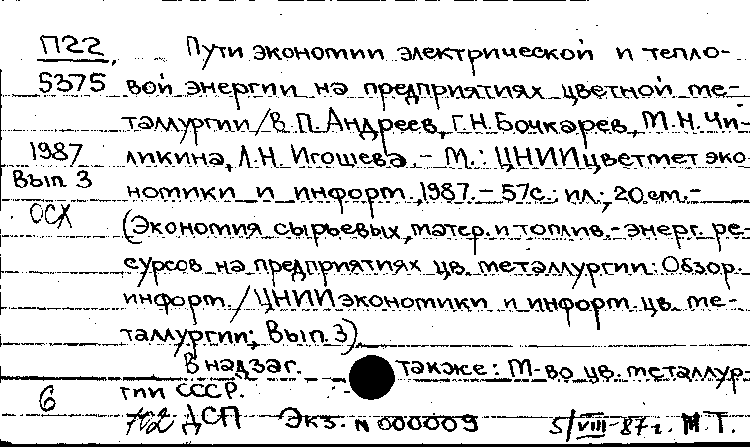 П22 Пути экономии электрической и тепло-
5375 вой энергии на предприятиях цветной ме-
таллургии / В.П. Андреев, Г.Н. Бочкарев, М.Н. Чи-
1987 ликина, Л.Н. Игошева. - М.: ЦНИИцветмет эко-
Вып 3 номики и информ., 1987. - 57с.; ил.; 20 см. -
ОСХ (Экономия сырьевых, матер. и топлив.-энерг. ре-
сурсов на предприятиях цв. металлургии: Обзор.
информ. / ЦНИИ экономики и информ. цв. ме-
таллургии; Вып. 3).
В надзаг. также: М-во цв. металлур-
6 гии СССР.
ДСП Экз. N 000009 5/VIII-87г. М.Т.